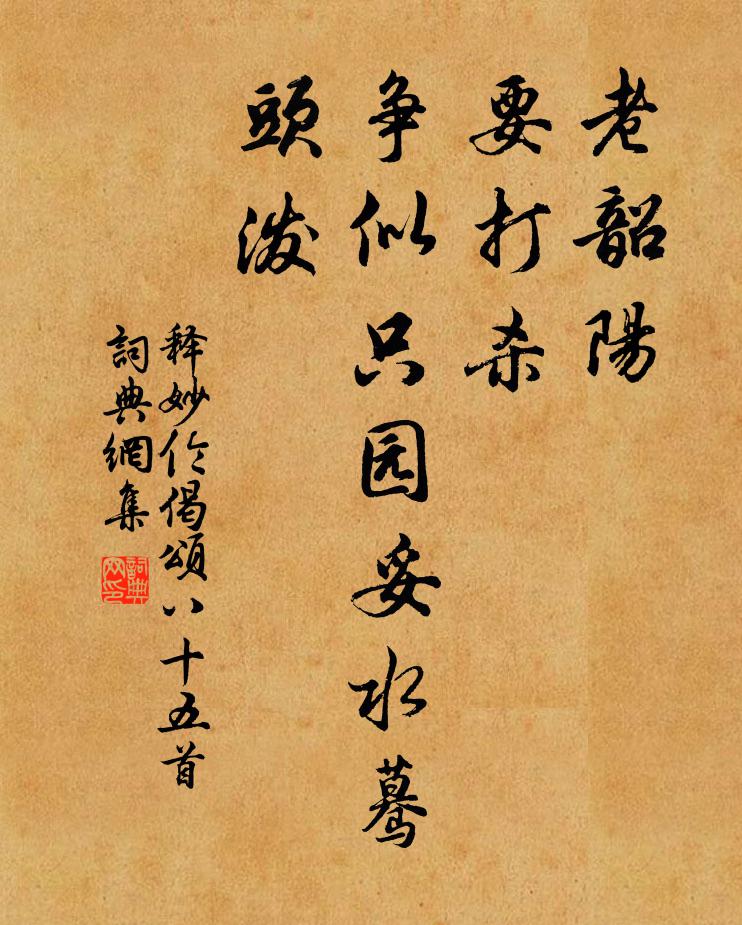 老韶陽
要打杀
争似只园妥水驀
頭泼
释妙伦偈頌八十五首
詞典網集
詞典网印